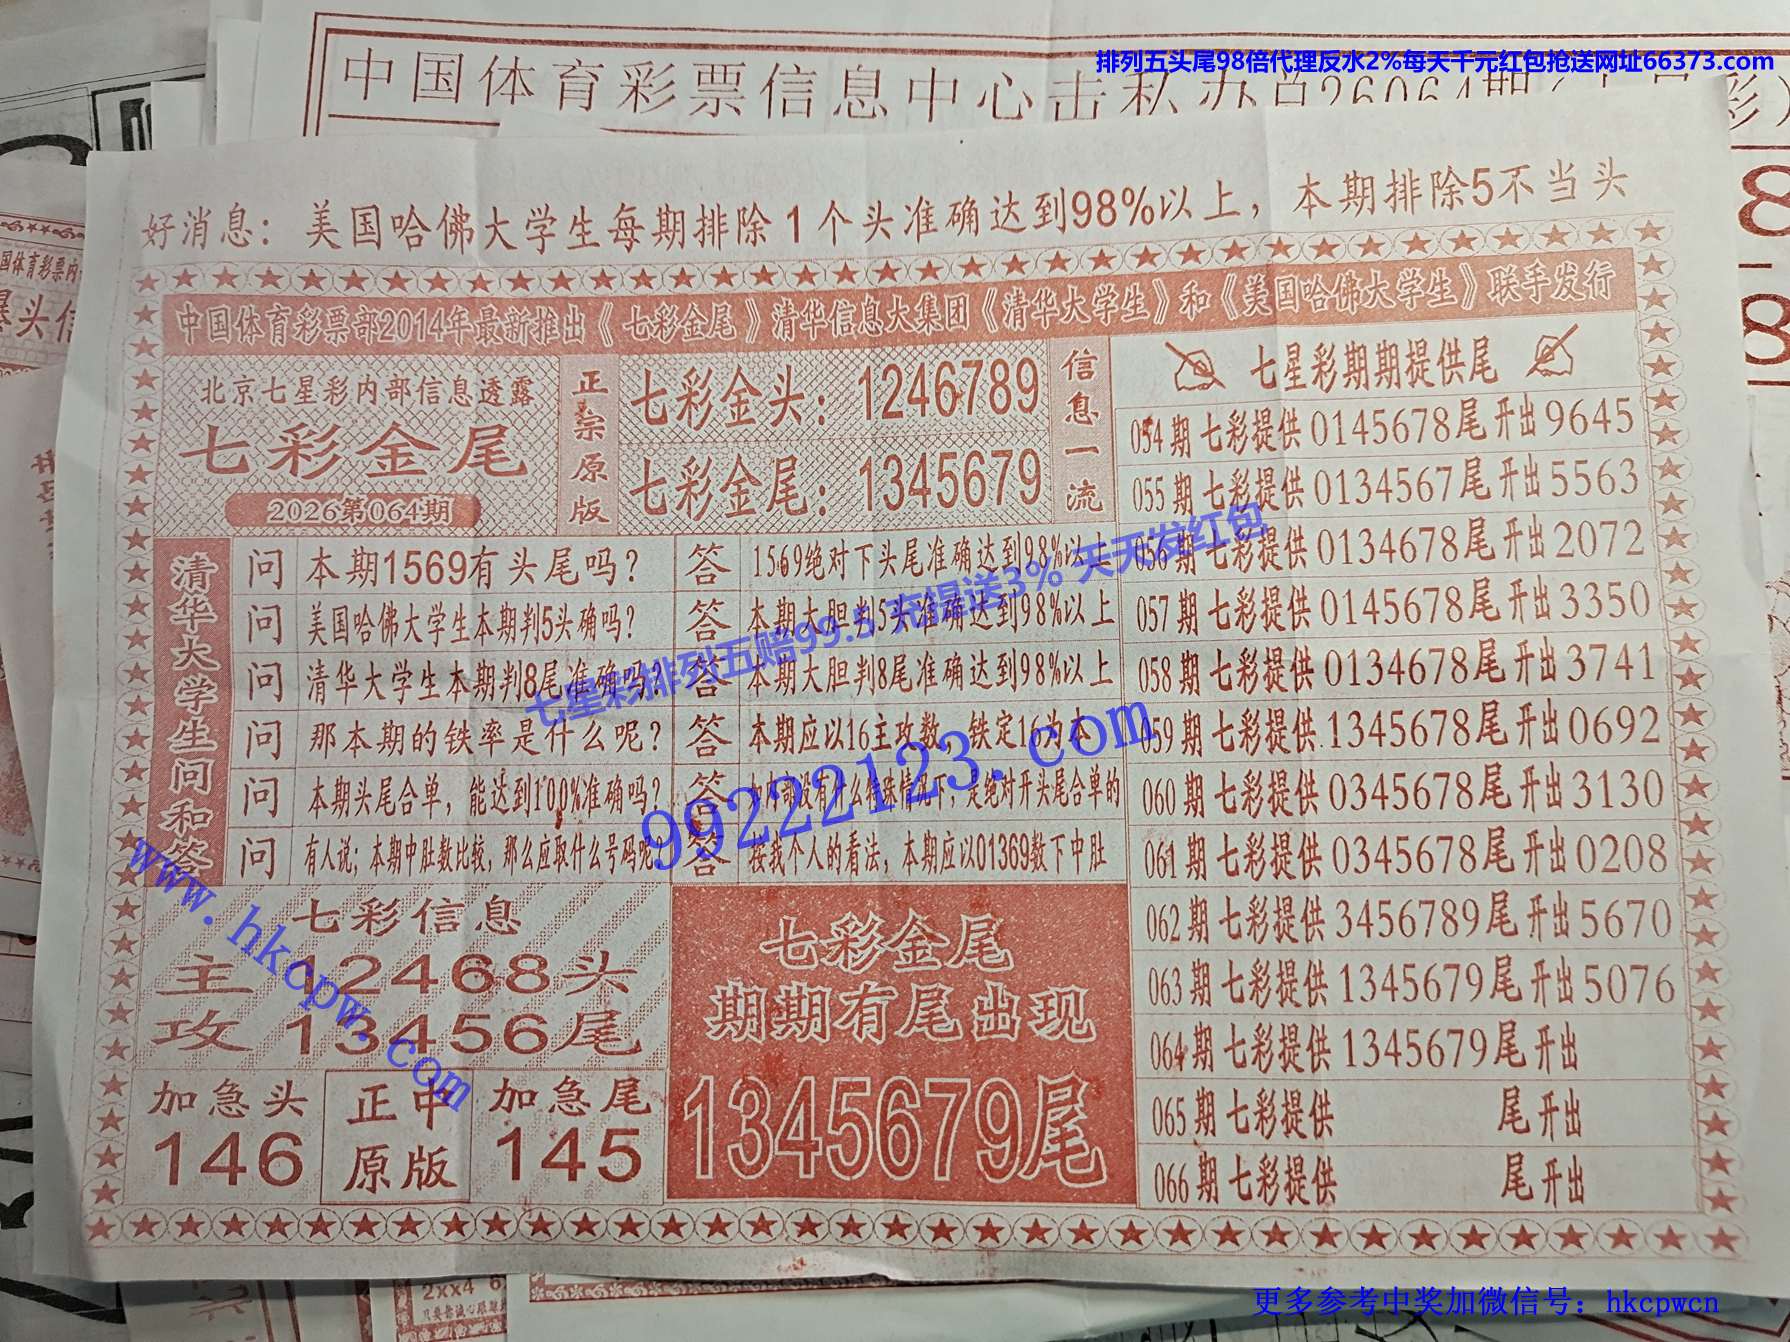 排列五头尾98倍代理反水2%每天千元红包抢送网址66373.com
中国体育彩票信息中心击私办总26064期
好消息：美国哈佛大学生每期排除1个头准确达到98%以上，本期排除5不当头
中国体育彩票部2014年最新推出《七彩金尾》清华信息大集团《清华大学生》和《美国哈佛大学生》联手发行
北京七星彩内部信息透露
七彩金尾
2026第064期
正宗原版
七彩金头：1246789
七彩金尾：1345679
信息一流
清华大学生问和答
问 本期1569有头尾吗？ 答 1569绝对下头尾准确达到98%以上
问 美国哈佛大学生本期判5头确吗？ 答 本期大胆判5头准确达到98%以上
问 清华大学生本期判8尾准确吗？ 答 本期大胆判8尾准确达到98%以上
问 那本期的铁率是什么呢？ 答 本期应以16主攻数，铁定16为本
问 本期头尾合单，能达到100%准确吗？ 答 如内部没有什么特殊情况下，是绝对开头尾合单的
问 有人说；本期中肚数比较，那么应取什么号码呢？ 答 按我个人的看法，本期应以01369数下中肚
七彩信息
主攻
12468头
13456尾
加急头
146
正中
原版
加急尾
145
七彩金尾
期期有尾出现
1345679尾
七星彩期期提供尾
054期七彩提供0145678尾开出9645
055期七彩提供0134567尾开出5563
056期七彩提供0134678尾开出2072
057期七彩提供0145678尾开出3350
058期七彩提供0134678尾开出3741
059期七彩提供1345678尾开出0692
060期七彩提供0345678尾开出3130
061期七彩提供0345678尾开出0208
062期七彩提供3456789尾开出5670
063期七彩提供1345679尾开出5076
064期七彩提供1345679尾开出
065期七彩提供 尾开出
066期七彩提供 尾开出
七星彩排列五赔99.5 充提送3% 天天发红包
99222123.com
www.hkcpw.com
2xx4 6
更多参考中奖加微信号：hkcpwcn